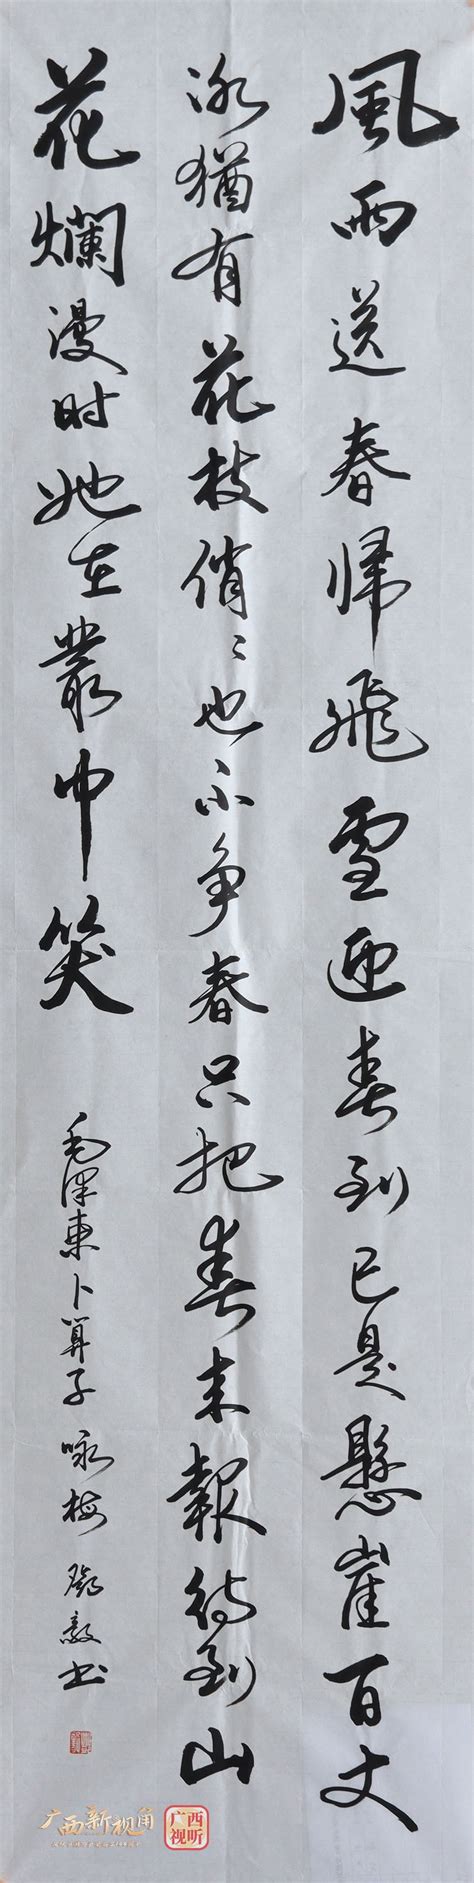 風雨送春帰飛雪迎春到已是懸崖百丈
冰猶有花枝俏〻也不争春只把春来報待到山
花爛漫时她在叢中笑
毛泽東卜算子咏梅 鄧毅书
广西新视角
广西
视听